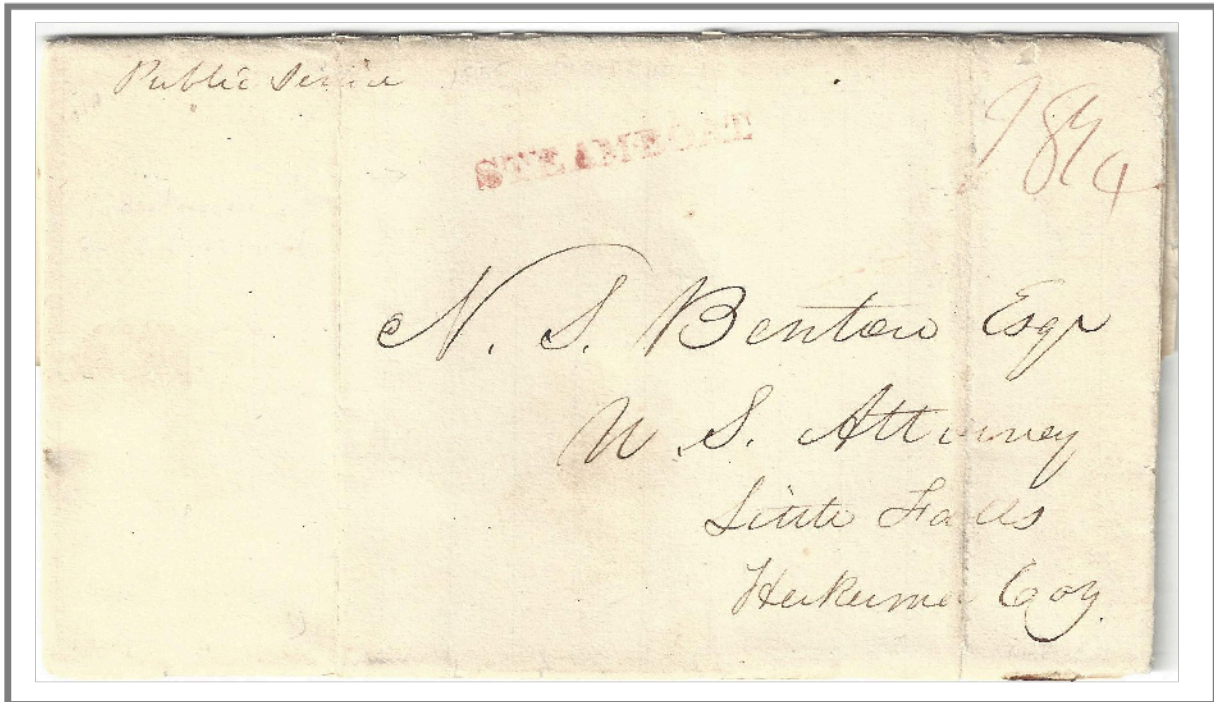 Public Service
STEAMBOAT
18 3/4
N. S. Benton Esqr
U. S. Attorney
Little Falls
Herkimer Coy.